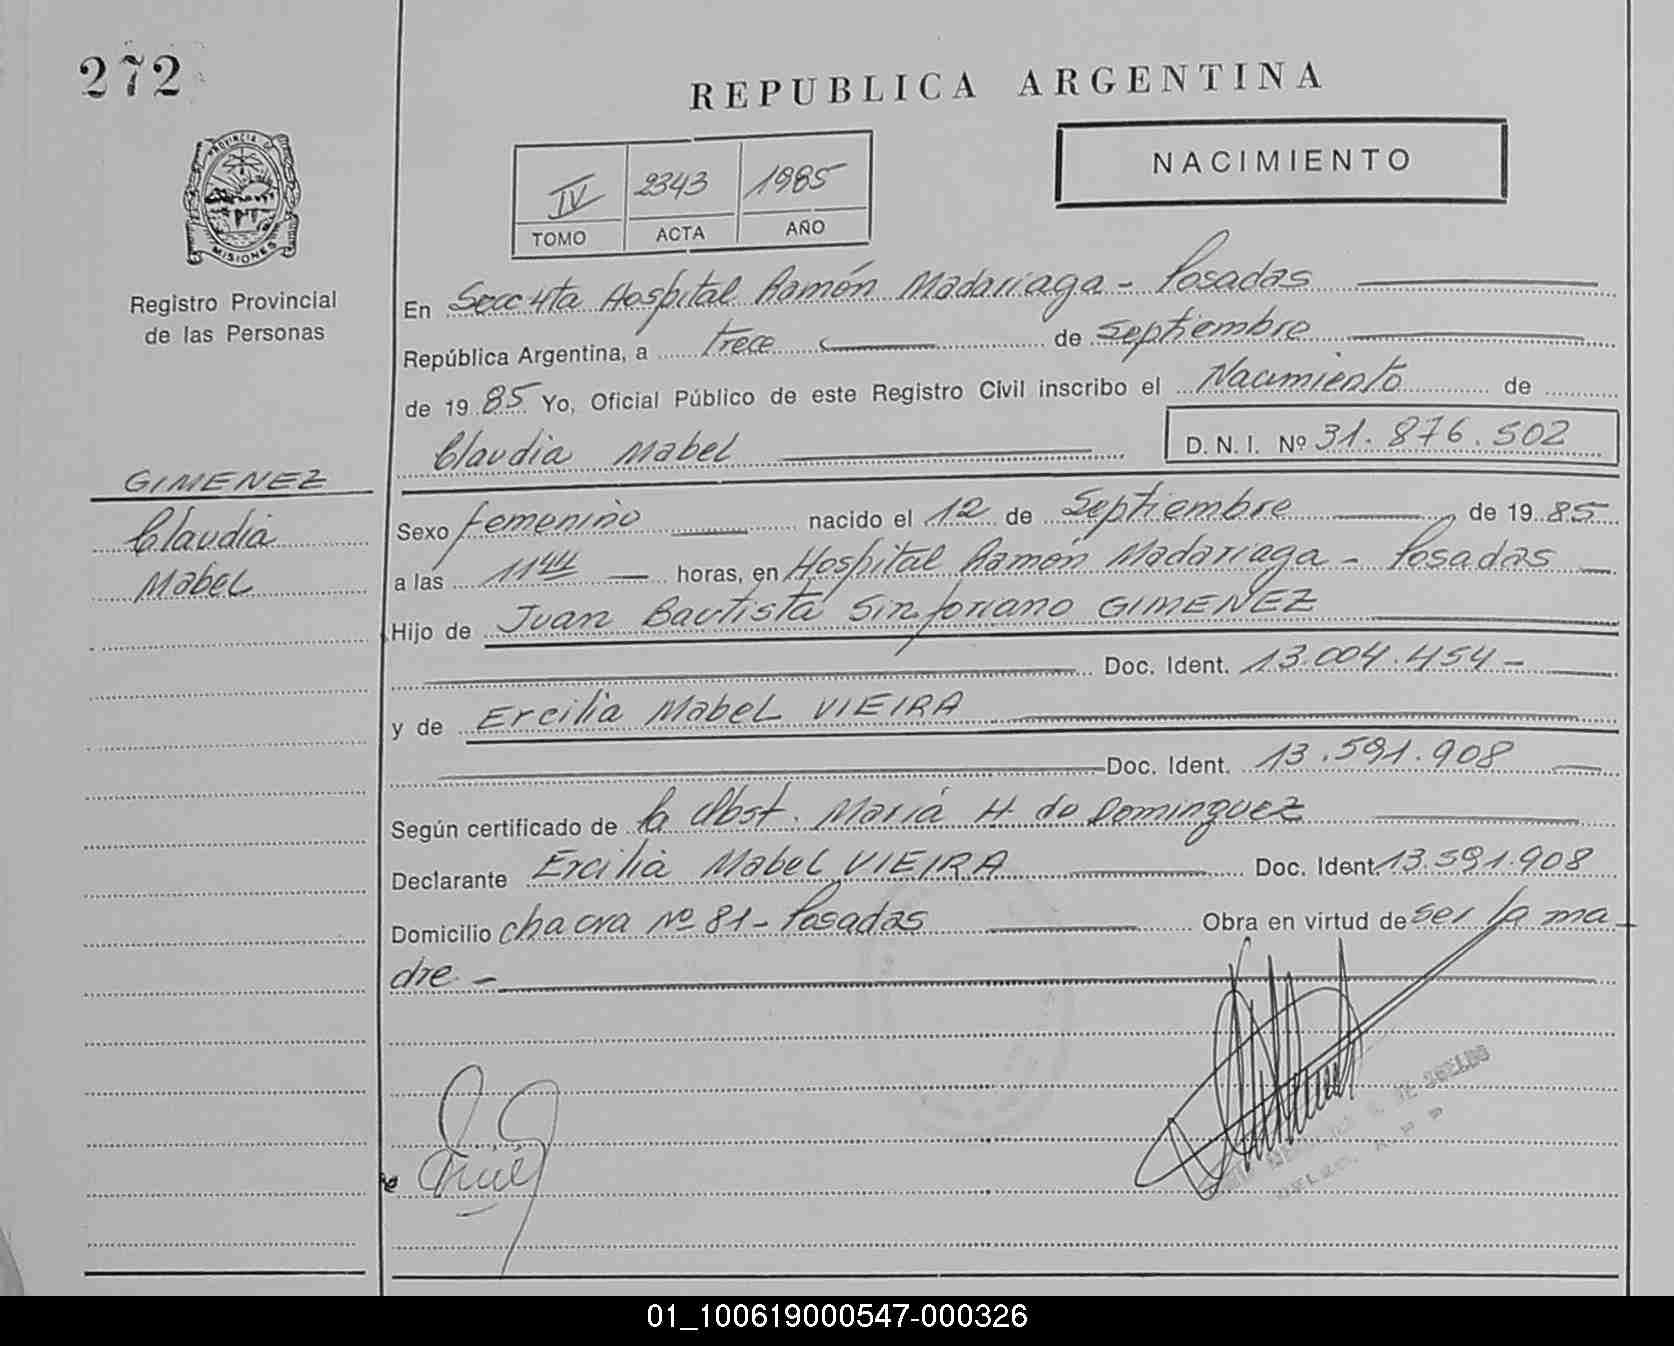 272
REPUBLICA ARGENTINA
PROVINCIA DE
MISIONES
NACIMIENTO
IV 2343 1985
TOMO ACTA AÑO
Registro Provincial
de las Personas
En Secc 4ta Hospital Ramón Madariaga - Posadas
República Argentina, a trece de Septiembre
de 1985 Yo, Oficial Público de este Registro Civil inscribo el Nacimiento de
Claudia Mabel D. N. I. Nº 31.876.502
GIMENEZ
Claudia
Mabel
Sexo femenino nacido el 12 de Septiembre de 1985
a las 11 44 horas, en Hospital Ramón Madariaga - Posadas
Hijo de Juan Bautista Sinforiano GIMENEZ
Doc. Ident. 13.004.454-
y de Ercilia Mabel VIEIRA
Doc. Ident. 13.591.908
Según certificado de la Obst. María H. de Dominguez
Declarante Ercilia Mabel VIEIRA Doc. Ident. 13.591.908
Domicilio chacra Nº 81 - Posadas Obra en virtud de ser la ma
dre -
01_100619000547-000326